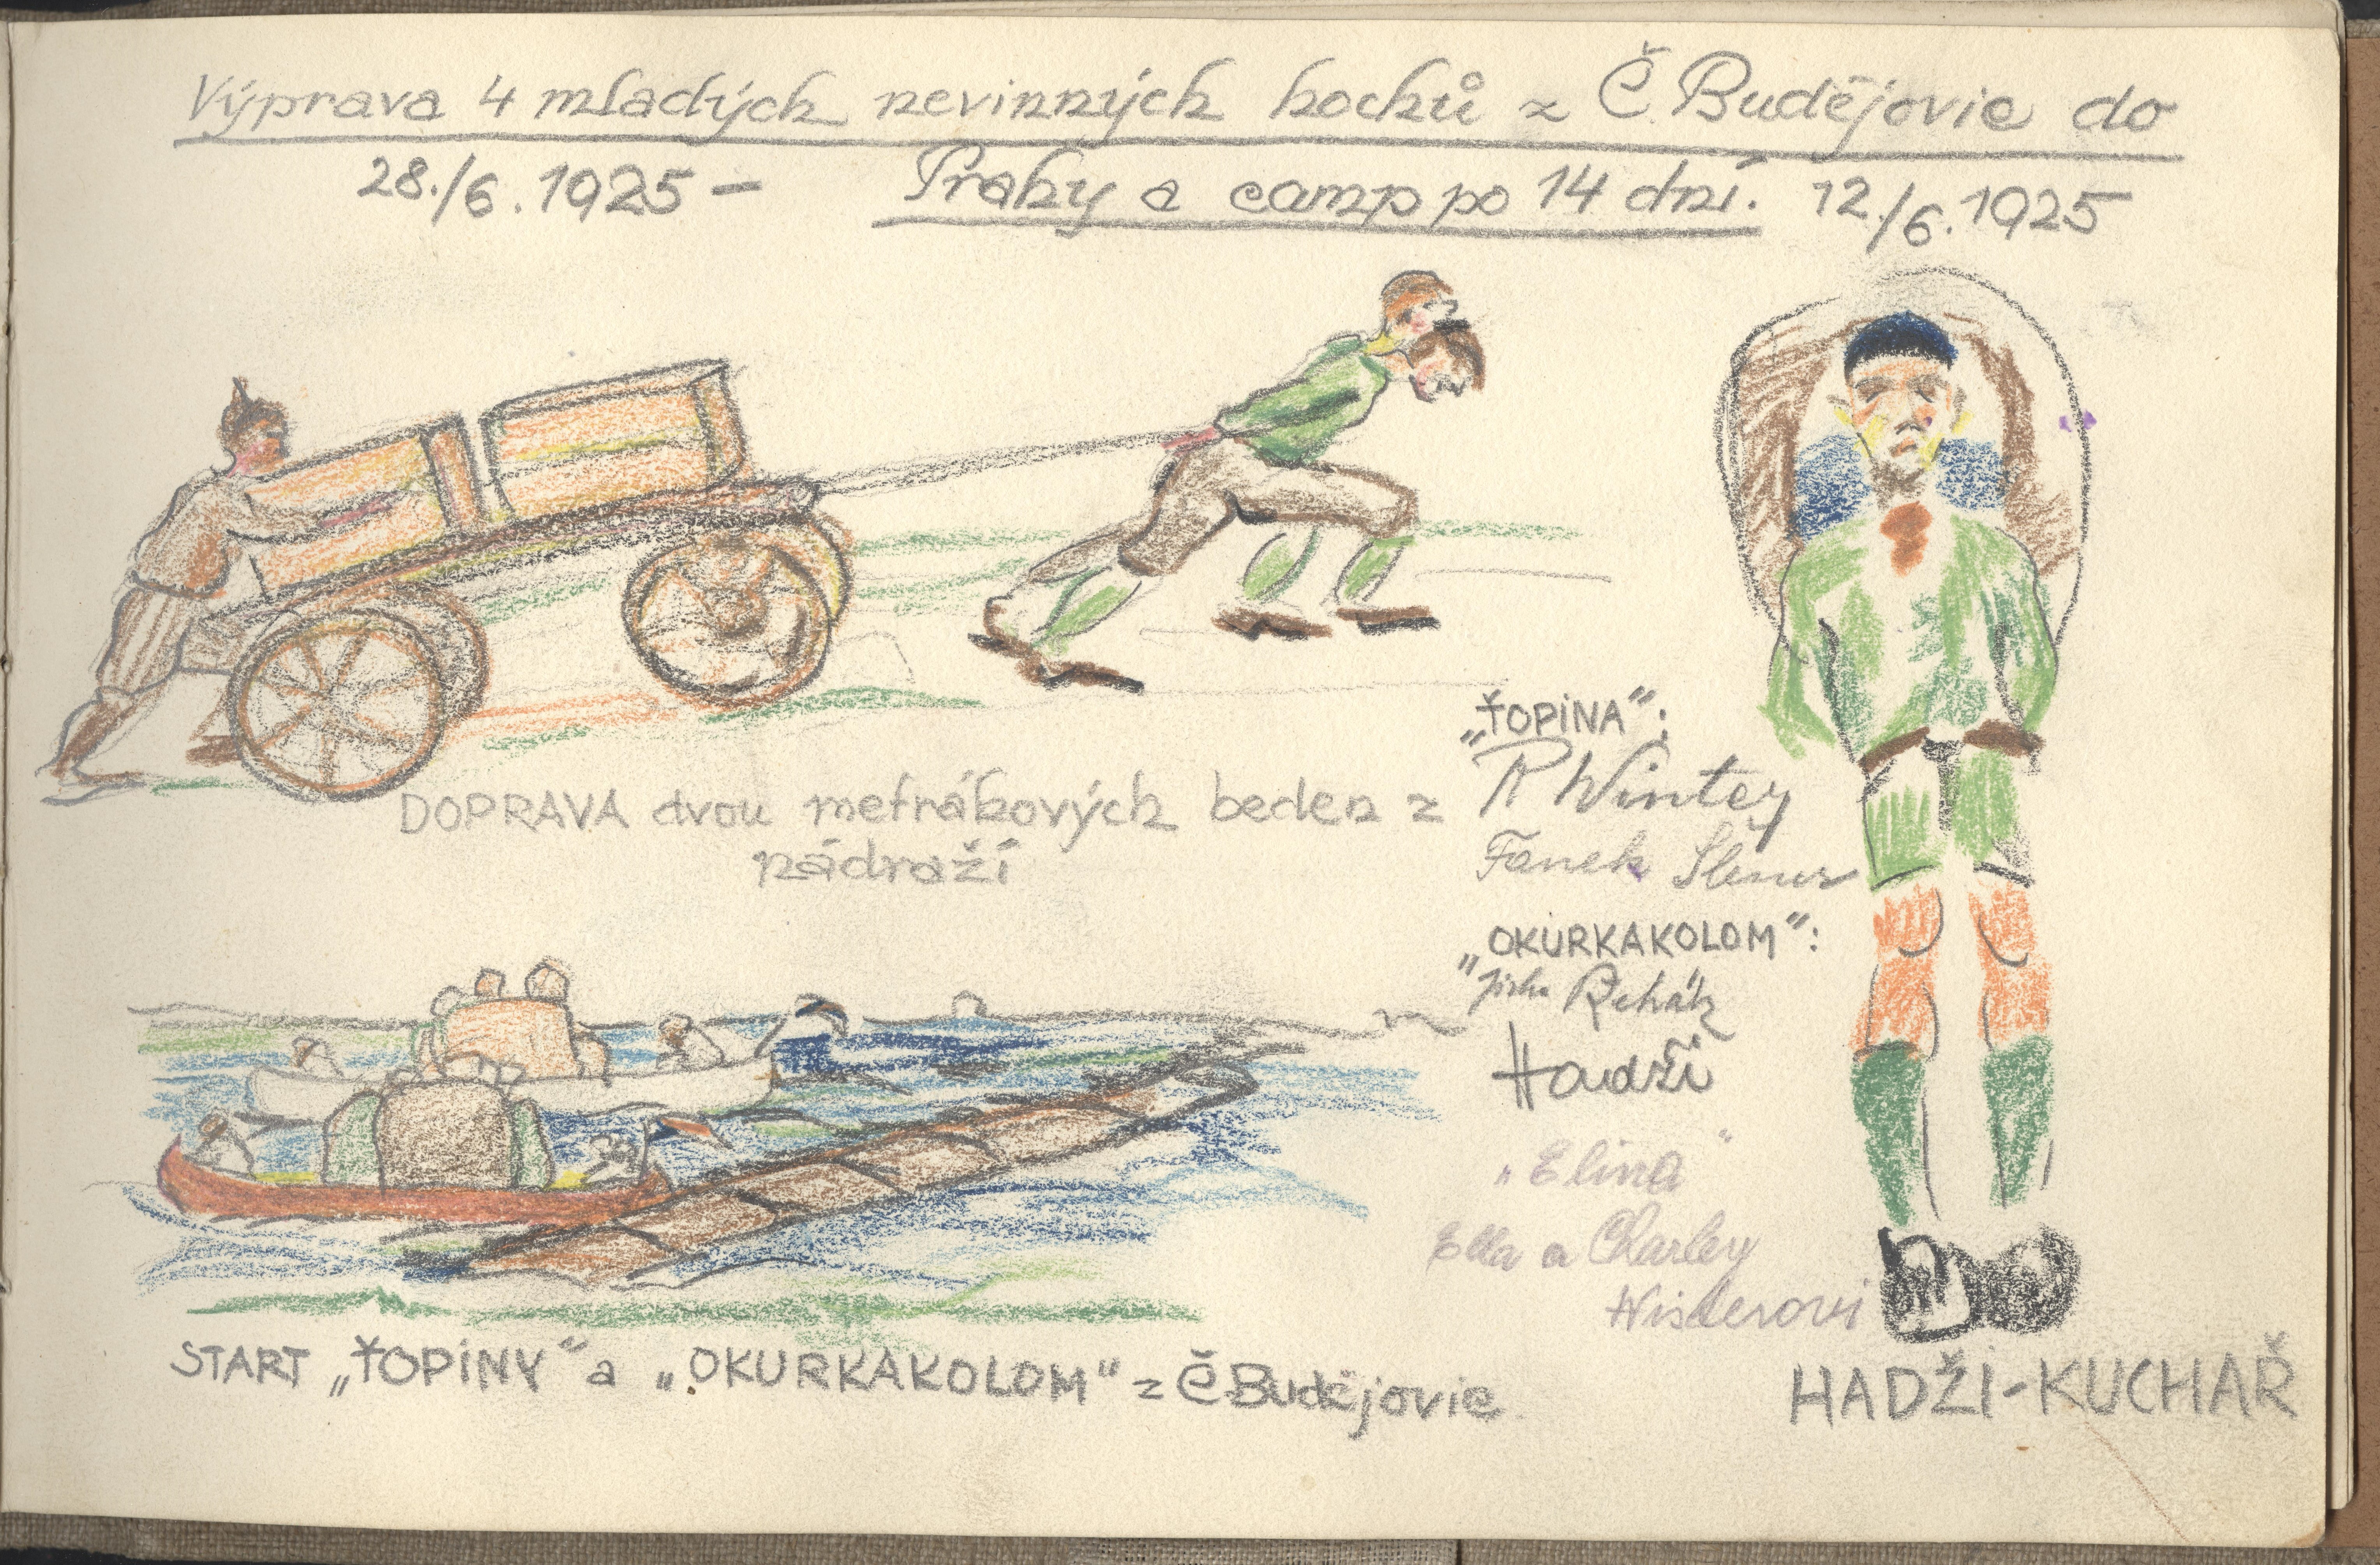 Výprava 4 mladých nevinných hochů z Č. Budějovic do
28./6. 1925 – Prahy a camp po 14 dní. 12./6. 1925
„ŤOPINA“:
R Winter
DOPRAVA dvou metrákových beden z
nádraží
Fanek
„OKURKAKOLOM“:
Jirka Řehák
Hadži
„Elina“
Ella a Charley
START „ŤOPINY“ a „OKURKAKOLOM“ z Č Budějovic
HADŽI-KUCHAŘ